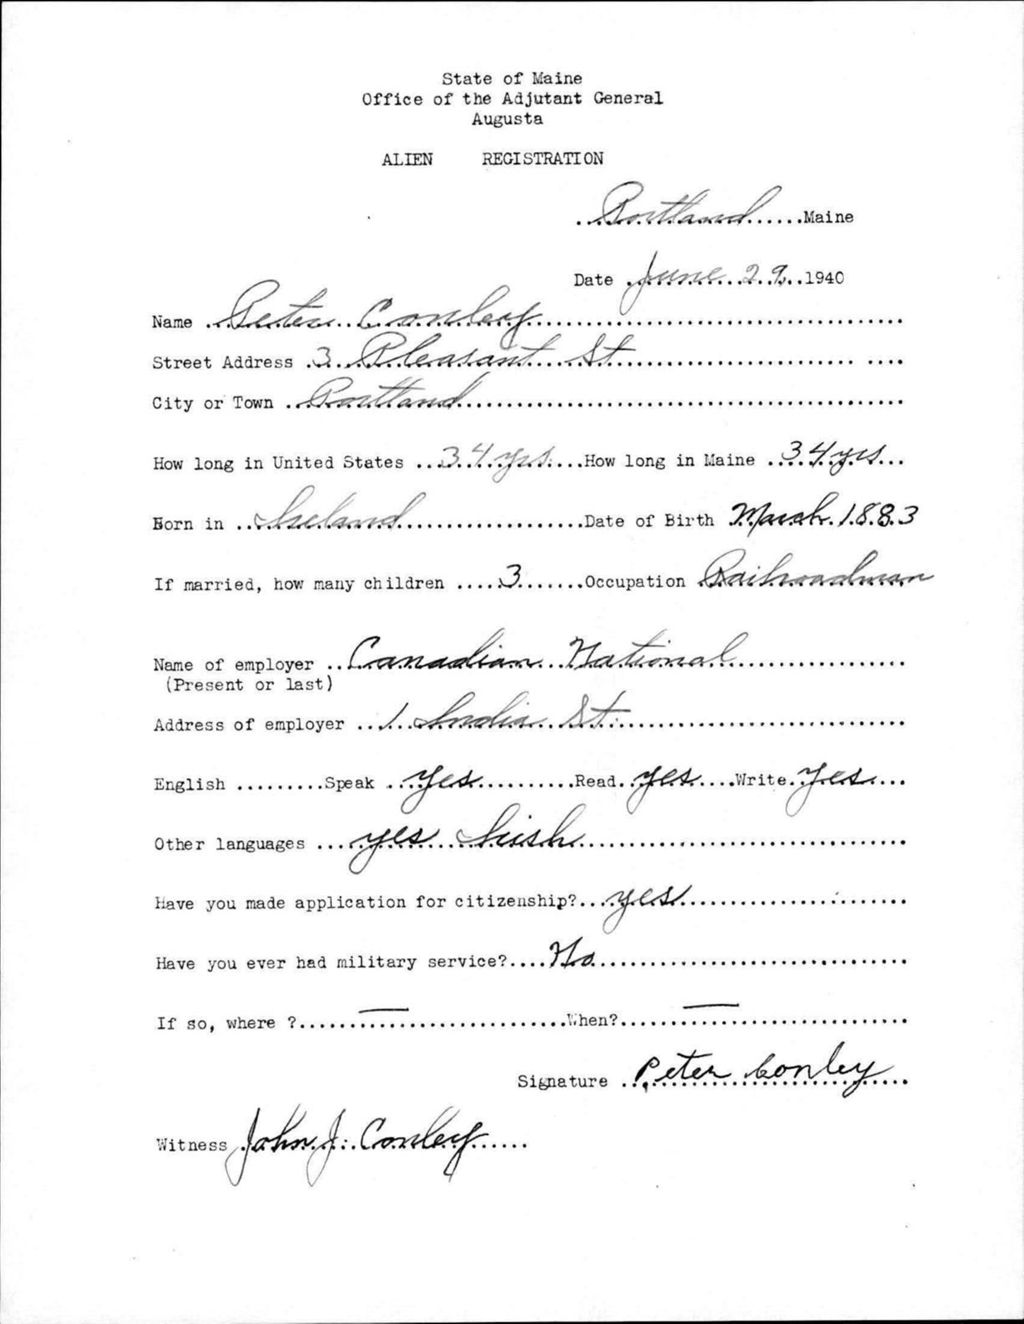 State of Maine
Office of the Adjutant General
Augusta
ALIEN REGISTRATION
..Portland......Maine
Date .June..29..1940
Name ..Peter..Conley.....................................
Street Address .3..Pleasant..St......................... ....
City or Town ..Portland...........................................
How long in United States ...34.yrs....How long in Maine ..34.yrs...
Born in ..Ireland....................Date of Birth .March.1883
If married, how many children ....3.......Occupation .Railroadman
Name of employer ..Canadian..National.................
(Present or last)
Address of employer ...1..India..St.............................
English .........Speak ..yes..........Read..yes....Write.yes...
Other languages ...yes...Irish.................................
Have you made application for citizenship?...yes.......................
Have you ever had military service?....No...............................
If so, where ?......—......................When?......—......................
Signature ..Peter Conley..
Witness .John.J..Conley.....